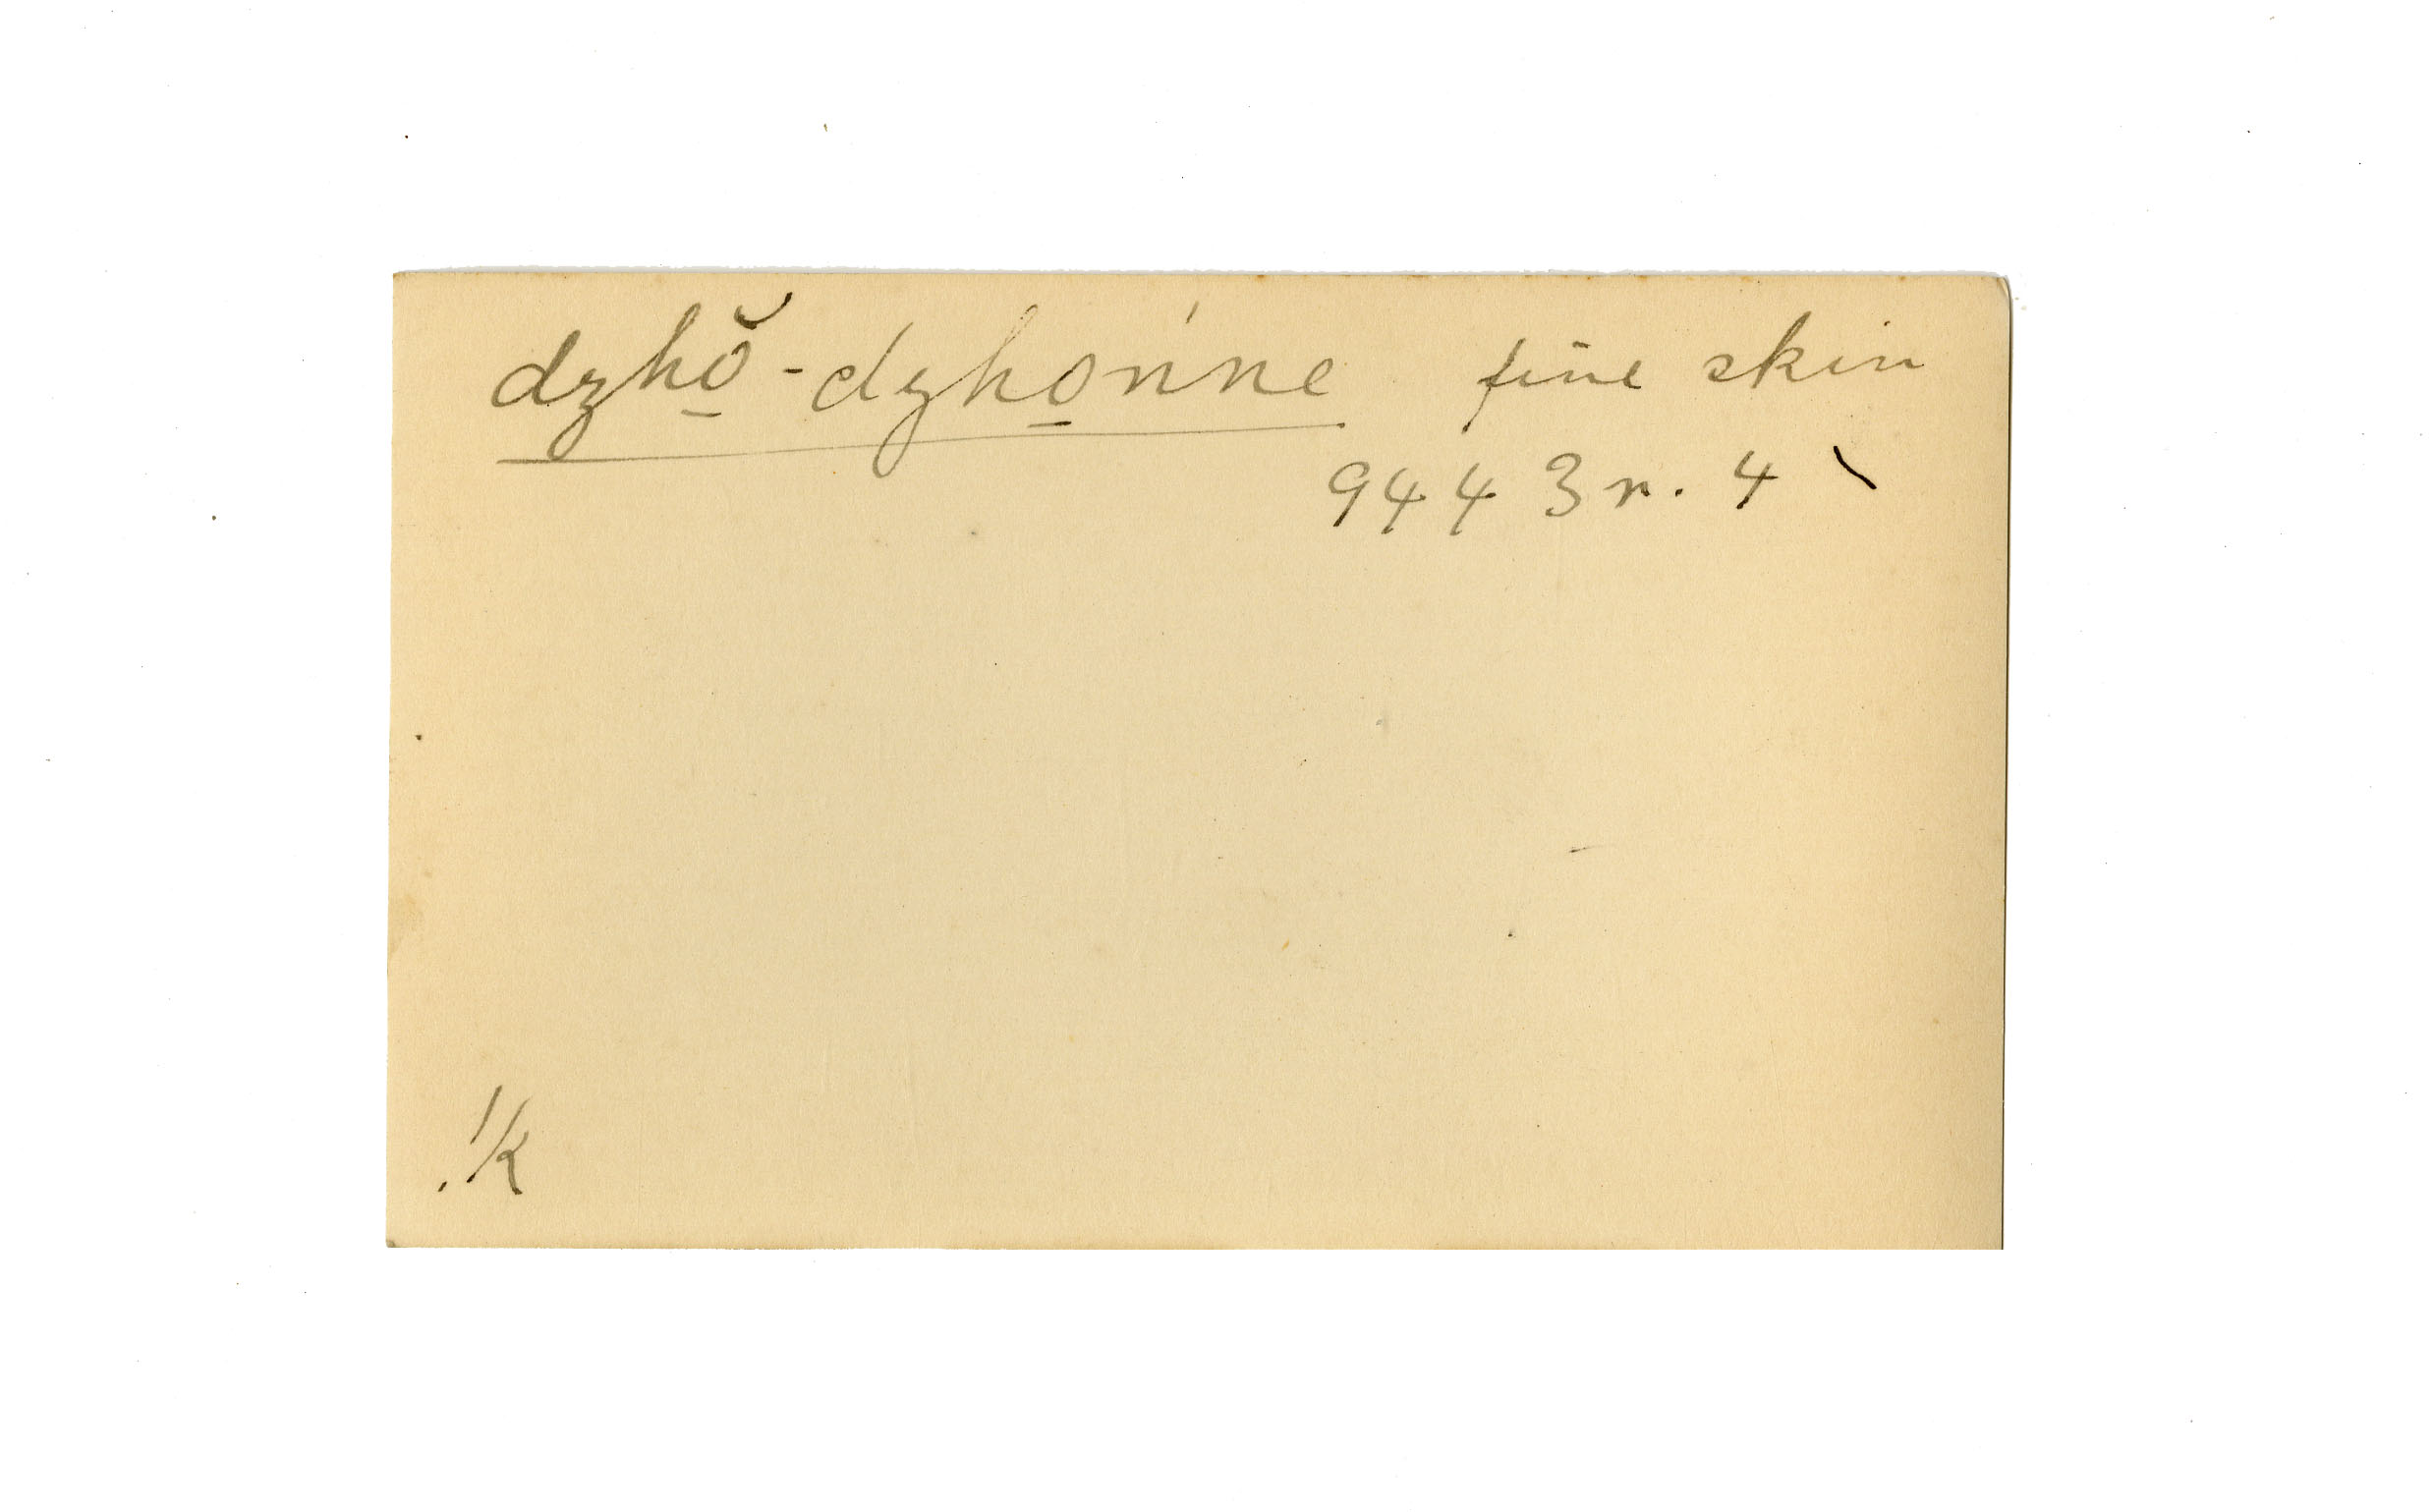 dzhŏ̱-dzho̱n'ne fine skin
9443 r. 4 \
.1/k